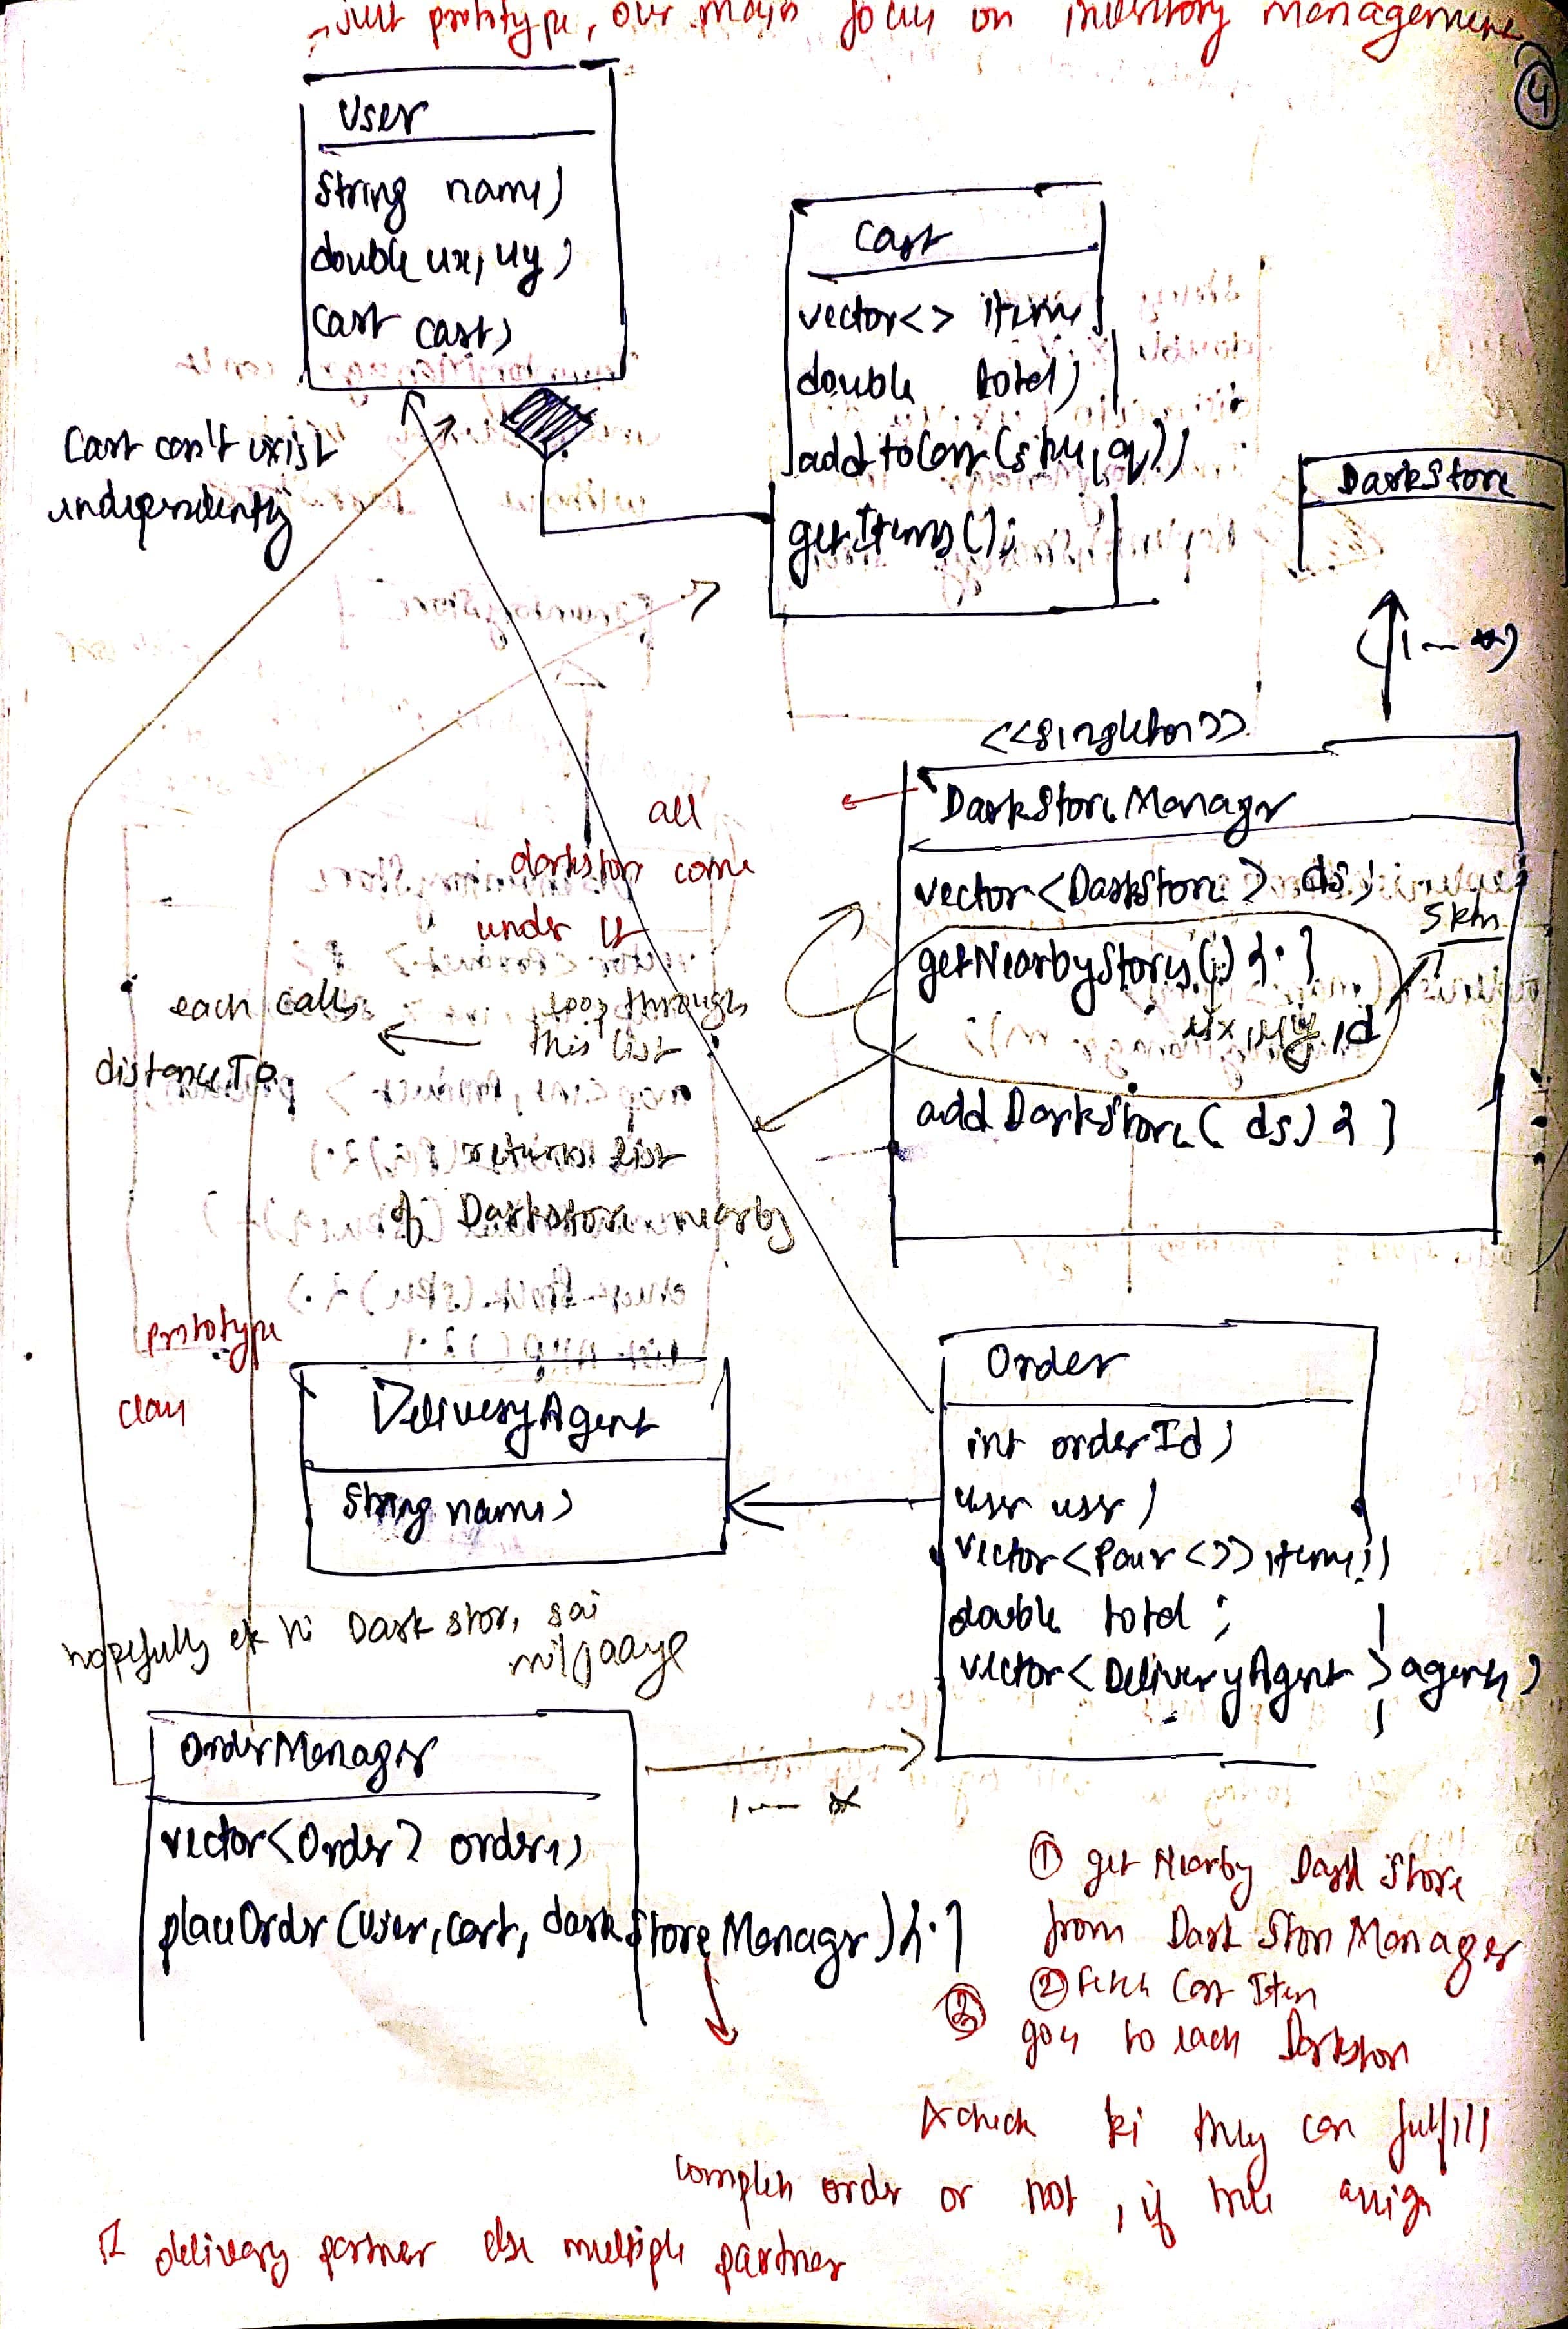 just prototype, our main focus on inventory management
4
User
String name;
double ux, uy;
Cart cart;
Cart can't exist
independently
Cart
vector<> items;
double total;
addtoCart(sku, q);
getItems();
DarkStore
(1 — *)
<<singleton>>
DarkStoreManager
vector<DarkStore> ds;
getNearbyStores(;) { · }
ux, uy, d
5 km
addDarkStore(ds) { }
all
darkstore come
under it
loop through
this list
each calls
distanceTo
returns list
of Darkstore nearby
prototype
class
DeliveryAgent
String name;
Order
int orderId;
User user;
vector<Pair<>> items;
double total;
vector<DeliveryAgent> agents;
hopefully ek hi Dark store, sai
mil jaaye
OrderManager
vector<Order> orders;
placeOrder(User, cart, darkStoreManager) { · }
1 — *
① get Nearby Dark Store
from Dark Store Manager
② Fetch Cart Item
③ goes to each Darkstore
& check ki they can fulfill
complete order or not, if true assign
1 delivery partner else multiple partner